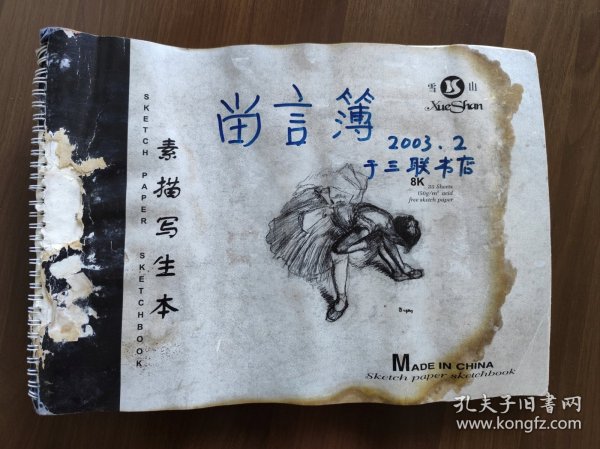 雪 山
XueShan
畄言簿
2003.2
于三联书店
8K
35 Sheets
150g/m² acid
free sketch paper
SKETCH PAPER SKETCHBOOK
素描写生本
MADE IN CHINA
Sketch paper sketchbook
孔夫子旧书网
www.kongfz.com